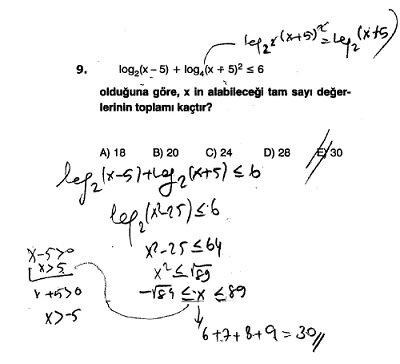 log₂²(x+5)² = log₂(x+5)
9. log₂(x – 5) + log₄(x + 5)² ≤ 6
olduğuna göre, x in alabileceği tam sayı değer-
lerinin toplamı kaçtır?
A) 18 B) 20 C) 24 D) 28 E) 30
log₂(x-5)+log₂(x+5) ≤ 6
log₂(x²-25) ≤ 6
x²-25 ≤ 64
x² ≤ √89
-√89 ≤ x ≤ 89
x-5>0
x>5
x+5>0
x>-5
6+7+8+9 = 30//